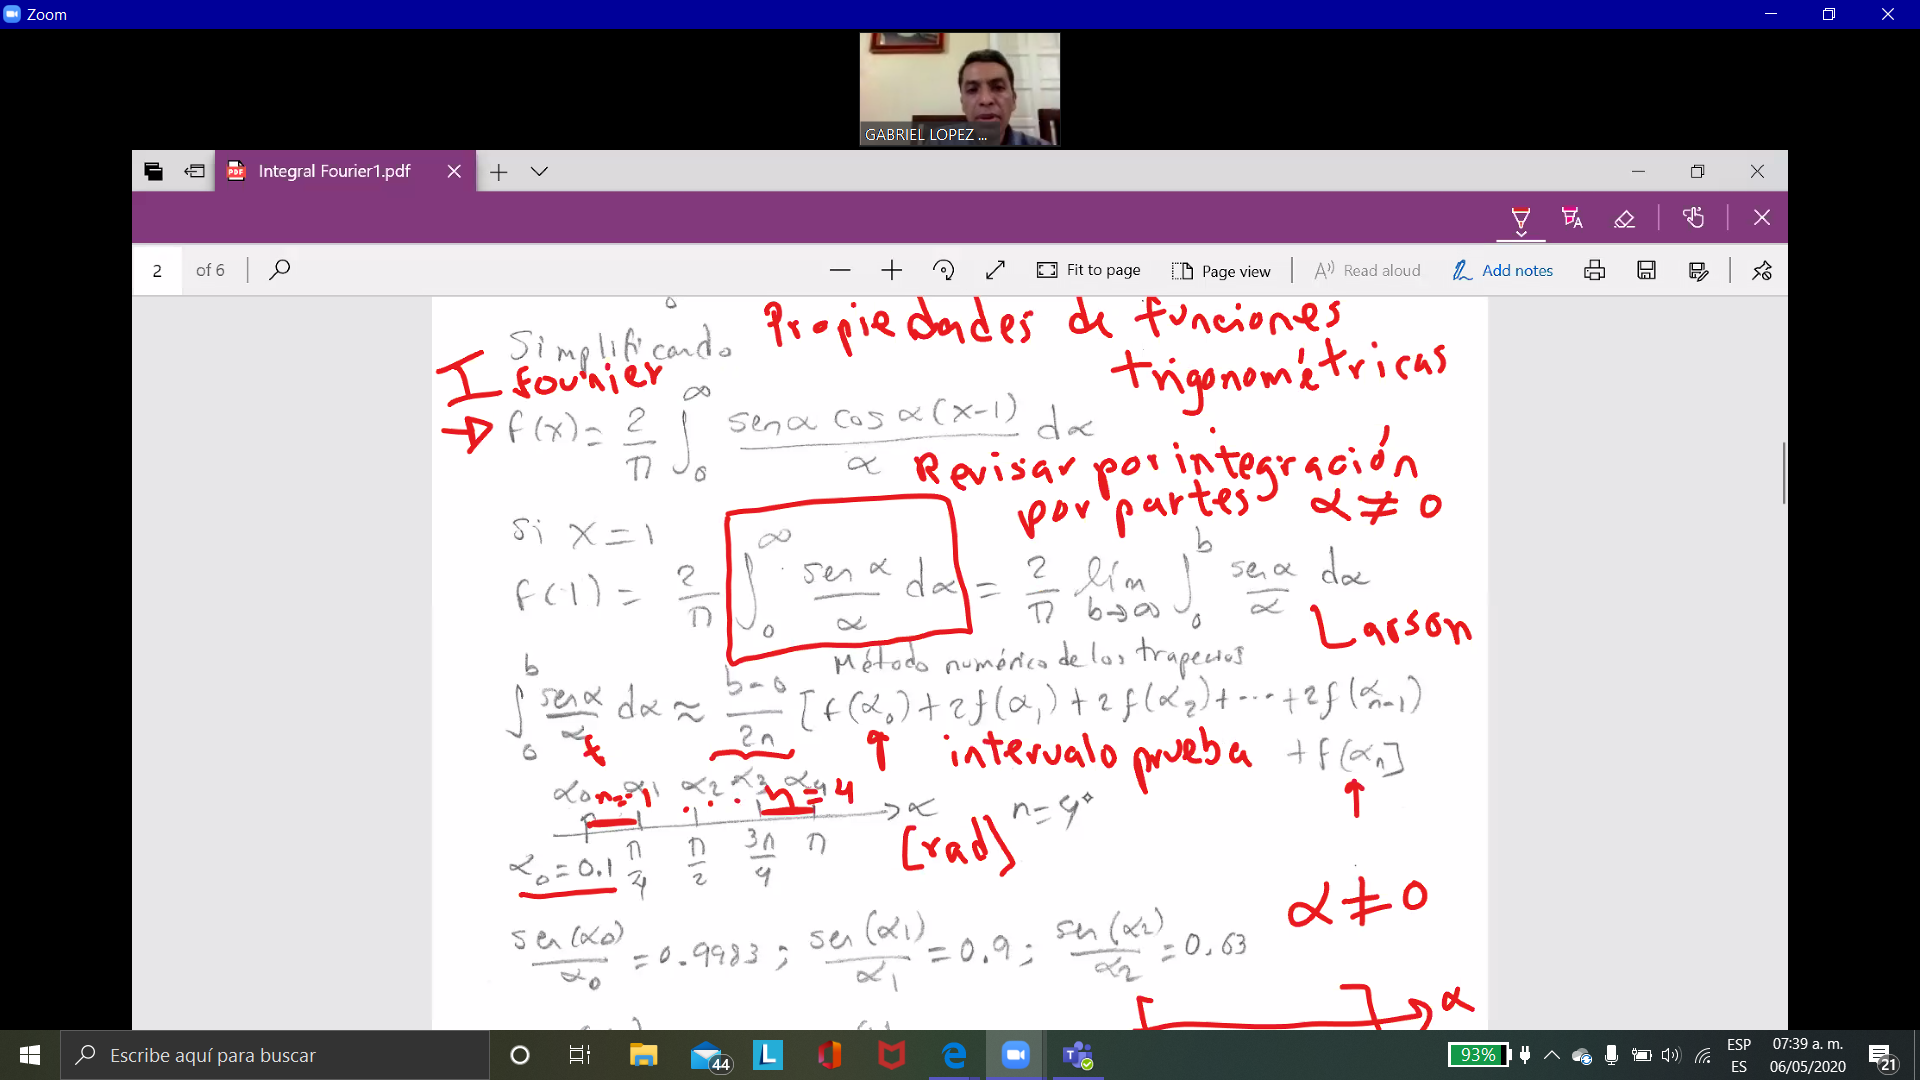 Zoom
GABRIEL LOPEZ ...
Integral Fourier1.pdf
2 of 6
Fit to page
Page view
Read aloud
Add notes
Propiedades de funciones
trigonométricas
Simplificando
I fourier
→ f(x) = 2/π ∫₀^∞ (sen α cos α(x-1))/α dα
Revisar por integración
por partes α ≠ 0
Si x = 1
f(1) = 2/π ∫₀^∞ (sen α)/α dα = 2/π lím b→∞ ∫₀^b (sen α)/α dα
Larson
Método numérico de los trapecios
∫₀^b (sen α)/α dα ≈ (b-0)/2n [f(α₀) + 2f(α₁) + 2f(α₂) + ··· + 2f(αₙ₋₁)
+ f(αₙ]
intervalo prueba
α₀ α₁ α₂ α₃ α₄
n=1 ... n=4
α
n=4
[rad]
π/4 π/2 3π/4 π
α₀ = 0.1
α ≠ 0
sen(α₀)/α₀ = 0.9983 ; sen(α₁)/α₁ = 0.9 ; sen(α₂)/α₂ = 0.63
α
Escribe aquí para buscar
44
93%
ESP
ES
07:39 a. m.
06/05/2020
21